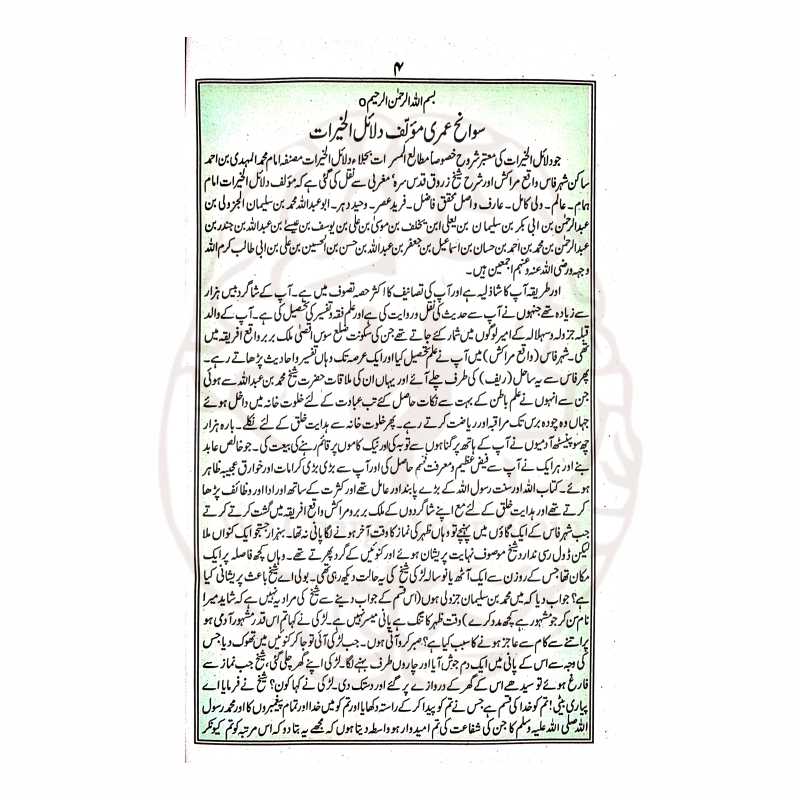 ۴
بسم اللہ الرحمٰن الرحیم ○
سوانح عمری مؤلف دلائل الخیرات
جو دلائل الخیرات کی معتبر شروح خصوصاً مطالع المسرات بجلاء دلائل الخیرات مصنفہ امام محمد المہدی بن احمد
ساکن شہر فاس واقع مراکش اور شرح شیخ زروق قدس سرہٗ مغربی سے نقل کی گئی ہے کہ مؤلف دلائل الخیرات امام
ہمام۔ عالم۔ ولی کامل۔ عارف واصل محقق فاضل۔ فرید عصر۔ وحید دہر۔ ابو عبداللہ محمد بن سلیمان الجزولی بن
عبدالرحمٰن بن ابی بکر بن سلیمان بن یعلی ابن یخلف بن موسیٰ بن علی بن یوسف بن عیسےٰ بن عبداللہ بن جندر بن
عبدالرحمٰن بن محمد بن احمد بن حسان بن اسماعیل بن جعفر بن عبداللہ بن حسن بن الحسین بن علی بن ابی طالب کرم اللہ
وجہہ و رضی اللہ عنہ و عنہم اجمعین ہیں۔
اور طریقہ آپ کا شاذلیہ ہے اور آپ کی تصانیف کا اکثر حصہ تصوف میں ہے۔ آپ کے شاگرد بیس ہزار
سے زیادہ تھے جنہوں نے آپ سے حدیث کی نقل و روایت کی ہے اور علم فقہ و تفسیر کی تحصیل کی ہے۔ آپ کے والد
قبلہ جزولہ و سہلالہ کے امیر لوگوں میں شمار کئے جاتے تھے جن کی سکونت ضلع سوس اقصیٰ ملک بربر واقع افریقہ میں
تھی۔ شہر فاس (واقع مراکش) میں آپ نے علم تحصیل کیا اور ایک عرصہ تک وہاں تفسیر و احادیث پڑھاتے رہے۔
پھر فاس سے یہ ساحل (ریف) کی طرف چلے آئے اور یہاں ان کی ملاقات حضرت شیخ محمد بن عبداللہ سے ہوئی
جن سے انہوں نے علم باطن کے بہت سے نکات حاصل کئے تب عبادت کے لئے خلوت خانہ میں داخل ہوئے
جہاں وہ چودہ برس تک مراقبہ اور ریاضت کرتے رہے۔ پھر خلوت خانہ سے ہدایت خلق کے لئے نکلے۔ بارہ ہزار
چھ سو پینسٹھ آدمیوں نے آپ کے ہاتھ پر گناہوں سے توبہ کی اور نیک کاموں پر قائم رہنے کی بیعت کی۔ جو خالص عابد
بنے اور ہر ایک نے آپ سے فیض عظیم و معرفت حاصل کی اور آپ سے بڑی بڑی کرامات اور خوارق عجیبہ ظاہر
ہوئے۔ کتاب اللہ اور سنت رسول اللہ کے بڑے پابند اور عامل تھے اور کثرت کے ساتھ اوراد اور وظائف پڑھا
کرتے تھے اور ہدایت خلق کے لئے مع اپنے شاگردوں کے ملک بربر و مراکش واقع افریقہ میں گشت کرتے کرتے
جب شہر فاس کے ایک گاؤں میں پہنچے تو وہاں ظہر کی نماز کا وقت آخر ہونے لگا پانی نہ تھا۔ بہزار جستجو ایک کنواں ملا
لیکن ڈول رسی ندارد شیخ موصوف نہایت پریشان ہوئے اور کنوئیں کے گرد پھرتے تھے۔ وہاں کچھ فاصلہ پر ایک
مکان تھا جس کے روزن سے ایک آٹھ یا نو سالہ لڑکی شیخ کی یہ حالت دیکھ رہی تھی۔ بولی اے شیخ باعث پریشانی کیا
ہے؟ جواب دیا کہ میں محمد بن سلیمان جزولی ہوں (اس قسم کے جواب دینے سے شیخ کی مراد یہ نہیں ہے کہ شاید میرا
نام سن کر جو مشہور ہے کچھ مدد کرے) وقت ظہر کا تنگ ہے پانی میسر نہیں ہے۔ لڑکی نے کہا تم اس قدر مشہور آدمی ہو
پر اتنے سے کام سے عاجز ہونے کا سبب کیا ہے؟ صبر کرو آتی ہوں۔ جب لڑکی آئی تو جا کر کنوئیں میں تھوک دیا جس
کی وجہ سے اس کے پانی میں ایک دم جوش آیا اور چاروں طرف بہنے لگا۔ لڑکی اپنے گھر چلی گئی، شیخ جب نماز سے
فارغ ہوئے تو سیدھے اس کے گھر کے دروازے پر گئے اور دستک دی۔ لڑکی نے کہا کون؟ شیخ نے فرمایا اے
پیاری بیٹی! تم کو خدا کی قسم ہے جس نے تم کو پیدا کر کے راستہ دکھایا اور تم کو میں خدا اور تمام پیغمبروں کا اور محمد رسول
اللہ صلی اللہ علیہ وسلم کا جن کی شفاعت کی تم امیدوار ہو واسطہ دیتا ہوں کہ مجھے یہ بتا دو کہ اس مرتبہ کو تم کیونکر